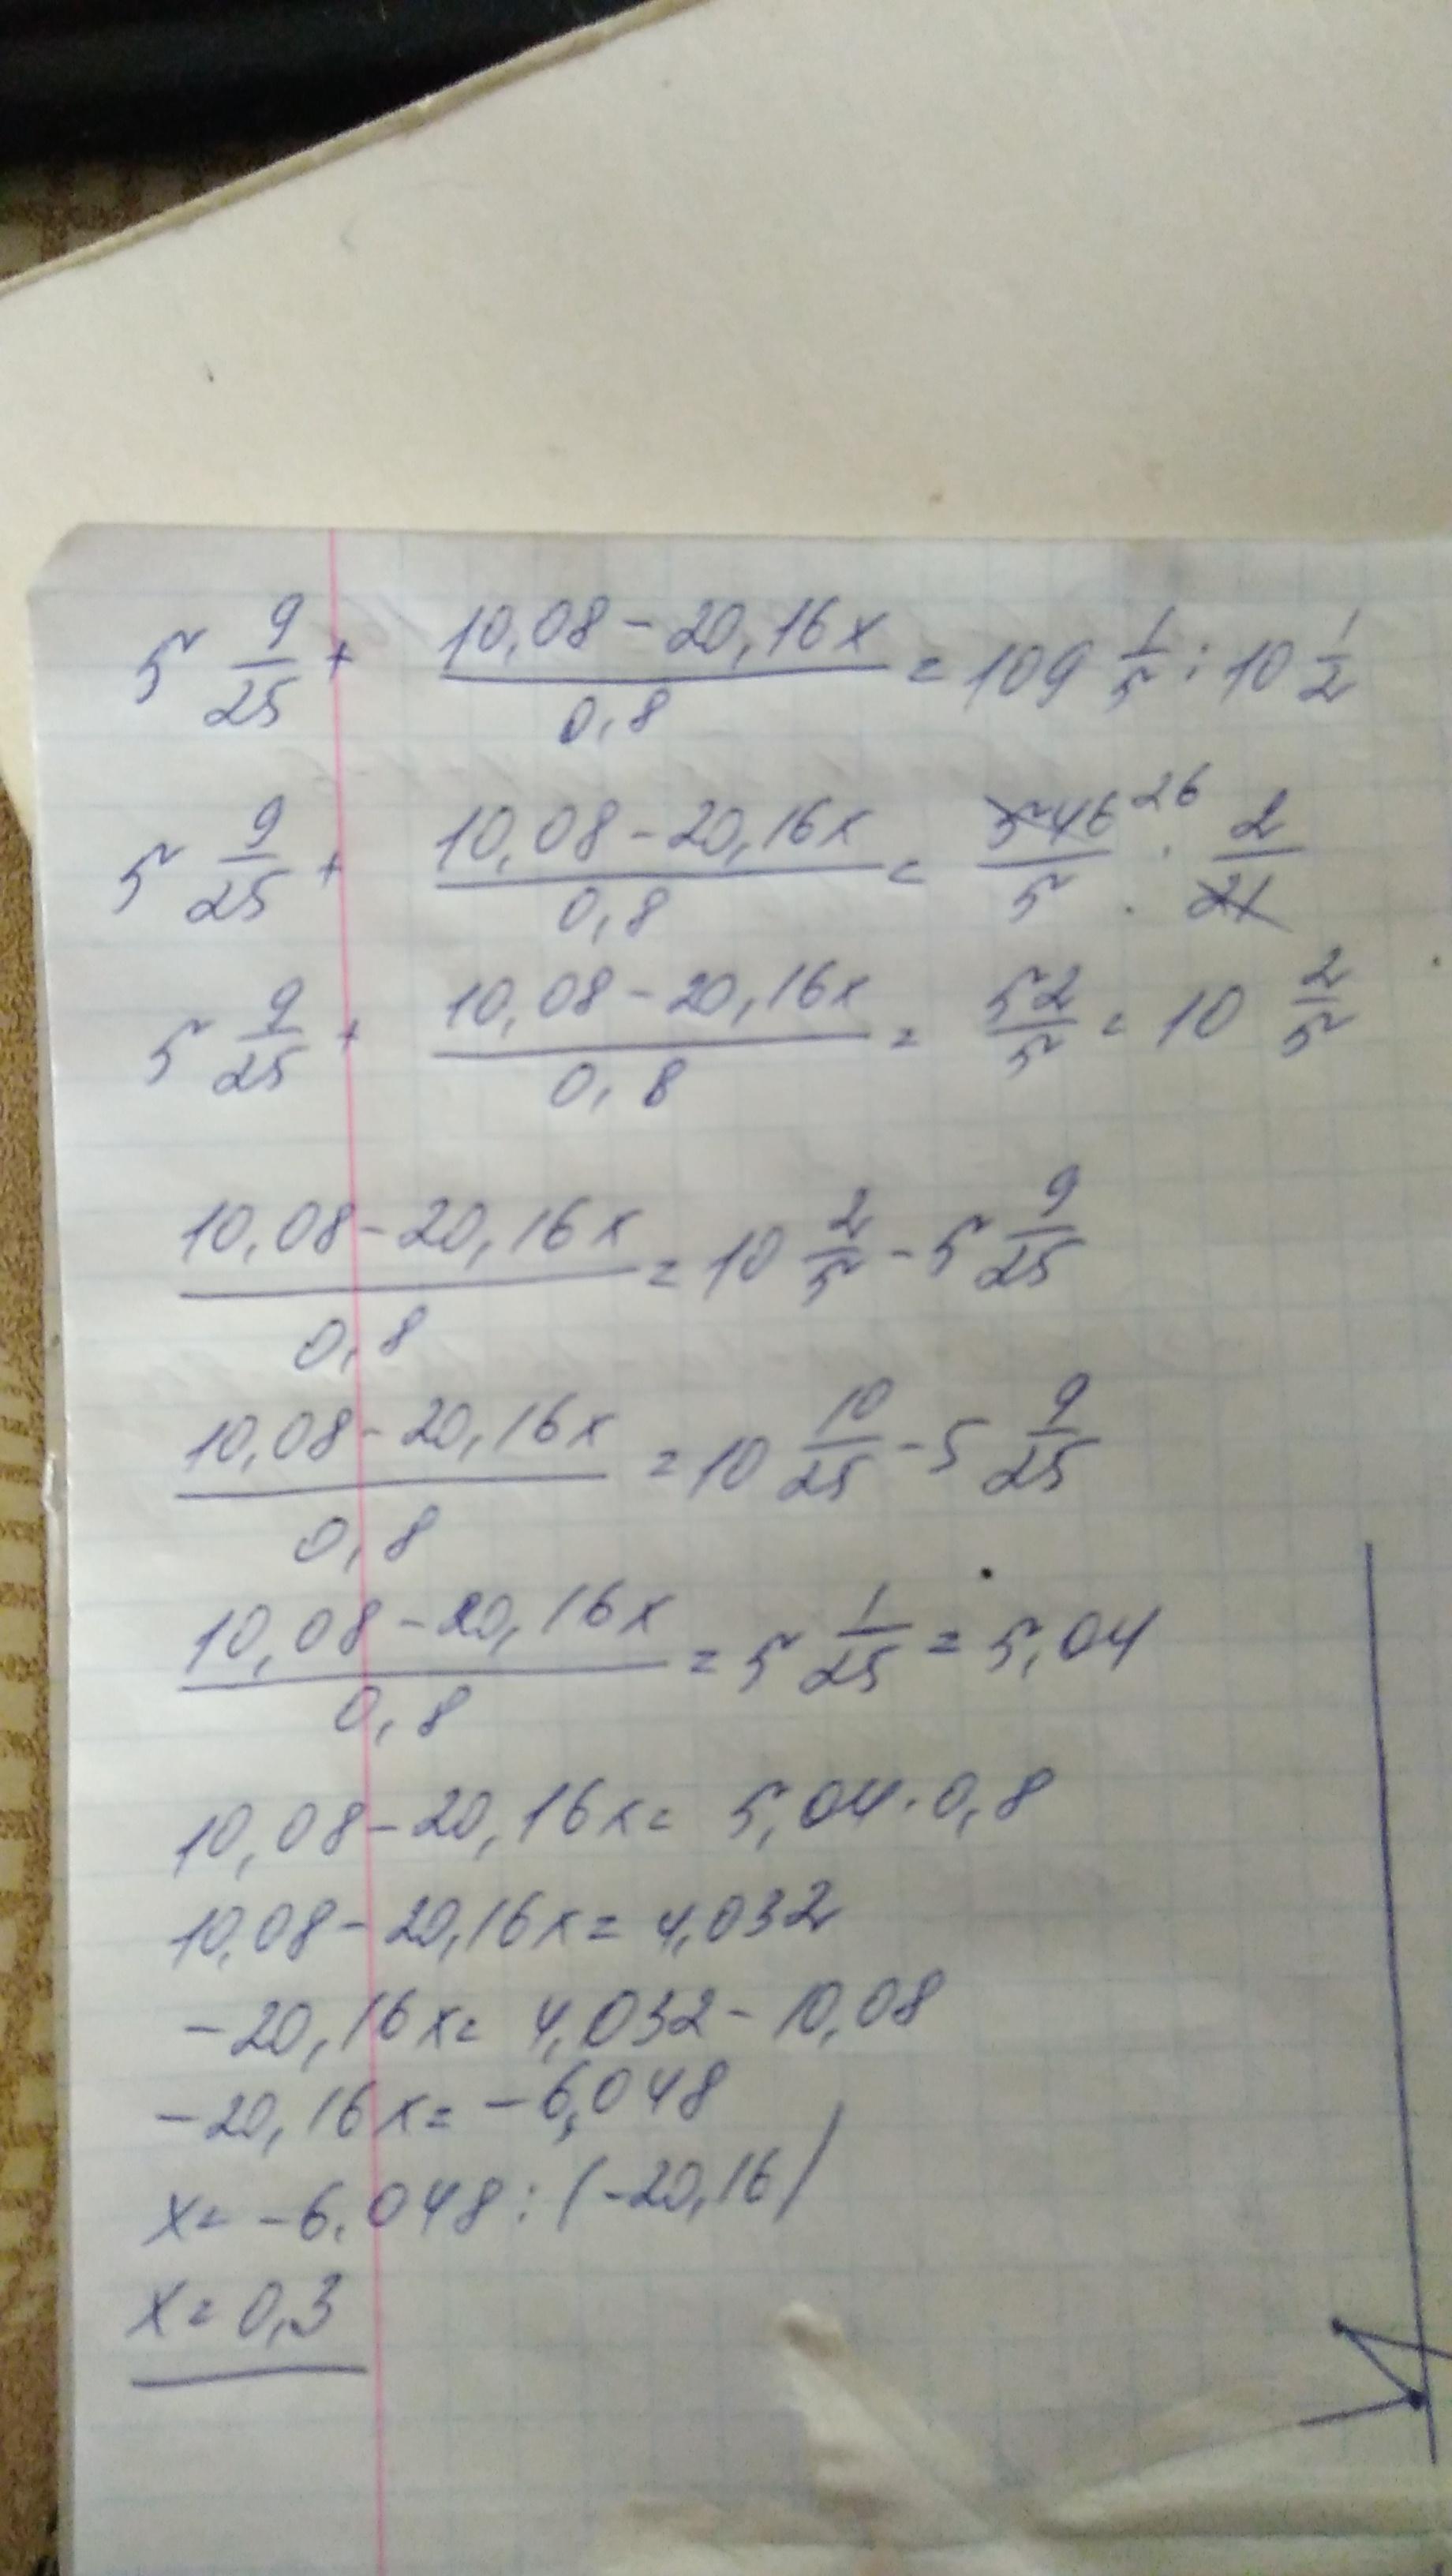 5 9/25 + (10,08 - 20,16x)/0,8 = 109 1/5 : 10 1/2
5 9/25 + (10,08 - 20,16x)/0,8 = 546/5 26 · 2/21
5 9/25 + (10,08 - 20,16x)/0,8 = 52/5 = 10 2/5
(10,08 - 20,16x)/0,8 = 10 2/5 - 5 9/25
(10,08 - 20,16x)/0,8 = 10 10/25 - 5 9/25
(10,08 - 20,16x)/0,8 = 5 1/25 = 5,04
10,08 - 20,16x = 5,04 · 0,8
10,08 - 20,16x = 4,032
-20,16x = 4,032 - 10,08
-20,16x = -6,048
x = -6,048 : (-20,16)
x = 0,3